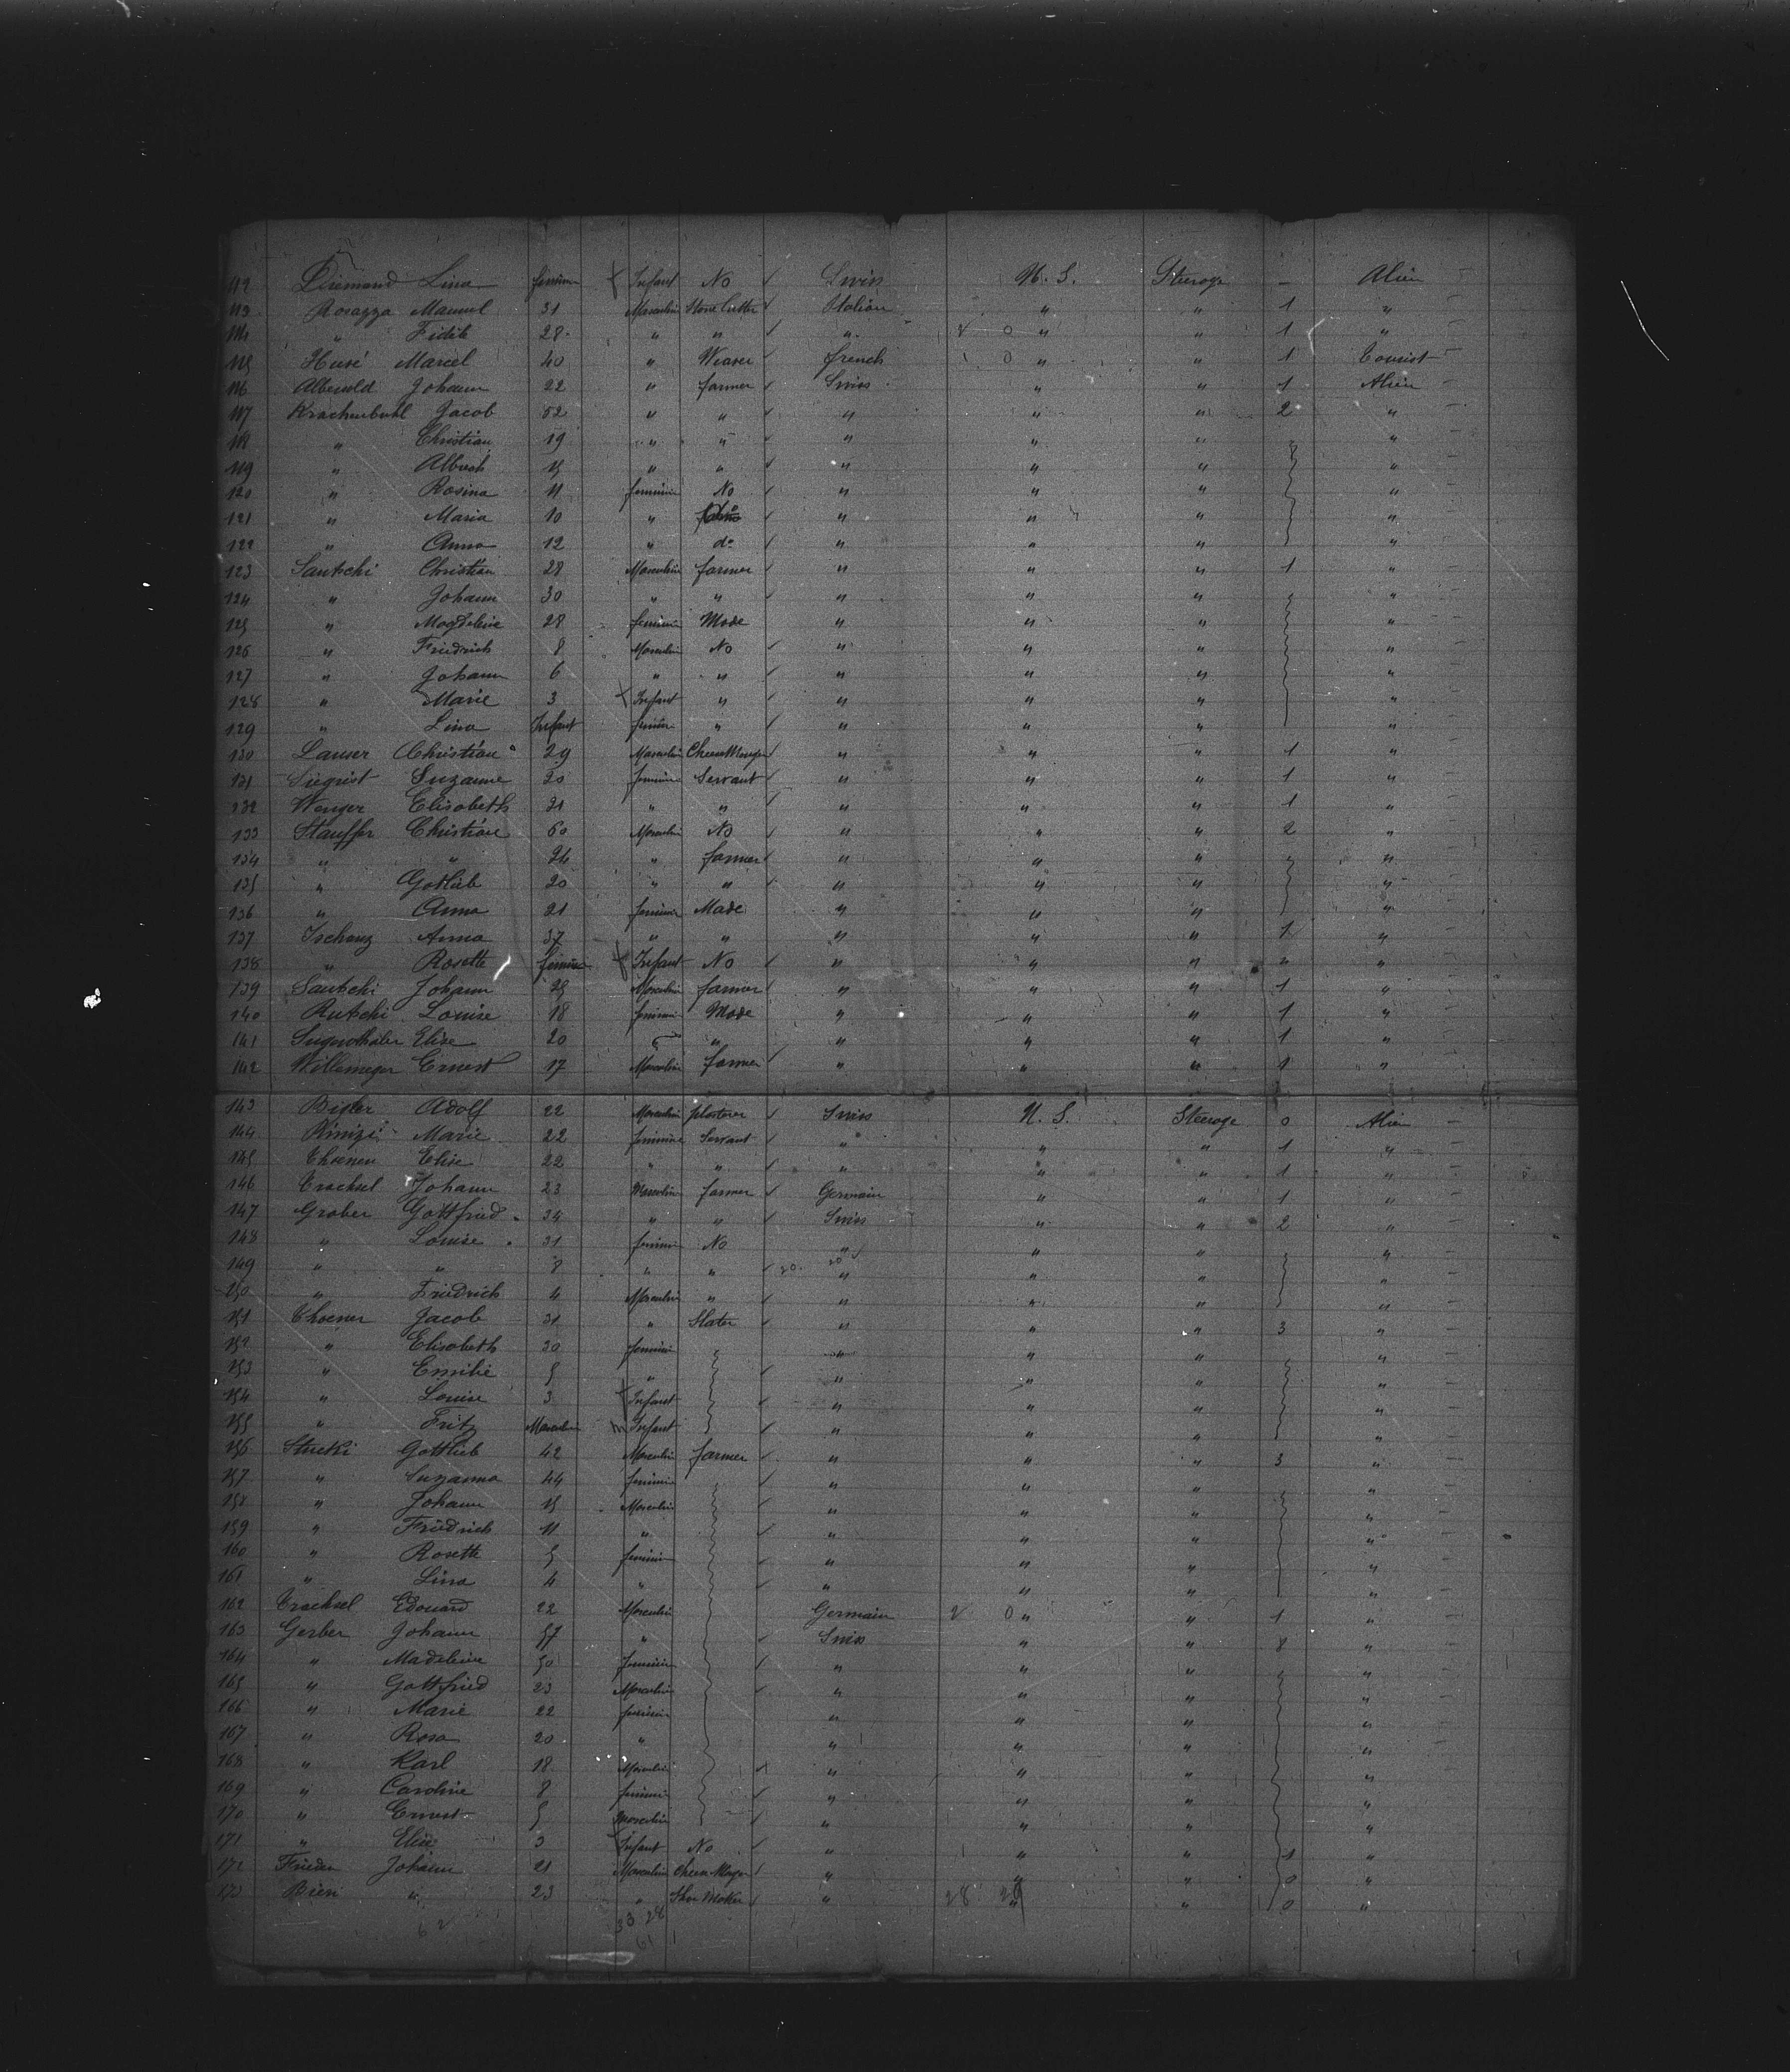 112 Diremand Lina feminin Infant No Swiss U. S. Steerage - Alien
113 Rosazza Manuel 31 Masculin Stone Cutter Italian " " 1 "
114 " Fidèle 28 " " " " " 1 "
115 Husé Marcel 40 " Weaver french " " 1 Tourist
116 Johann 22 " farmer Swiss " " 1 Alien
117 Krachenbuhl Jacob 52 " " " " " 2 "
118 " Christian 19 " " " " " "
119 " 15 " " " " " "
120 " Rosina 11 feminin No " " " "
121 " Maria 10 " " " " "
122 " Anna 12 " do " " " "
123 Santschi Christian 28 Masculin farmer " " " 1 "
124 " Johann 30 " " " " " "
125 " Magdeleine 28 feminin Made " " " "
126 " Friedrich 8 Masculin No " " " "
127 " Johann 6 " " " " " "
128 " Marie 3 Infant " " " " "
129 " Lina Infant feminin " " " " "
130 Lauser Christian 29 Masculin " " " 1 "
131 Siegrist Suzanne 20 feminin Servant " " " 1 "
132 Wenger Elisabeth 21 " " " " " 1 "
133 Stauffer Christian 60 Masculin No " " " 2 "
134 " " 24 " farmer " " " "
135 " Gotlieb 20 " " " " " "
136 " Anna 21 feminin Made " " " "
137 Tschanz Anna 37 " " " " " 1 "
138 " Rosette feminin Infant No " " " " "
139 Santschi Johann 25 Masculin farmer " " " 1 "
140 Rutschi Louise 18 feminin Made " " " 1 "
141 Elise 20 " " " " 1 "
142 Willemeger Ernest 17 Masculin farmer " " " 1 "
143 Adolf 22 Masculin plasterer Swiss U. S. Steerage 0 Alien
144 Marie 22 feminine Servant " " " 1 "
145 Thoenen Elise 22 " " " " " 1 "
146 Trachsel Johann 23 Masculin farmer Germain " " 1 "
147 Graber Gottfried 34 " " Swiss " " 2 "
148 " Louise 31 feminin No " " " "
149 " " 8 " " 20. 20 " " " "
150 " Friedrich 4 Masculin " " " " "
151 Thoener Jacob 31 " Slater " " " 3 "
152 " Elisabeth 30 feminin " " " "
153 " Emilie 5 " " " " "
154 " Louise 3 Infant " " " "
155 " Fritz Masculin Infant " " " "
156 Stucki Gottlieb 42 Masculin farmer " " " 3 "
157 " Suzanna 44 feminin " " " "
158 " Johann 15 Masculin " " " "
159 " Friedrich 11 " " " " "
160 " Rosette 5 feminin " " " "
161 " Lina 4 " " " " "
162 Trachsel Edouard 22 Masculin Germain " " 1 "
163 Gerber Johann 57 " Swiss " " 8 "
164 " Madeleine 50 feminin " " " "
165 " Gottfried 23 Masculin " " " "
166 " Marie 22 feminin " " " "
167 " Rosa 20 " " " " "
168 " Karl 18 Masculin " " " "
169 " Caroline 8 feminin " " " "
170 " Ernest 5 Masculin " " " "
171 " Elise 3 Infant No " " " "
172 Frieden Johann 21 Masculin " " " 1 0 "
173 Bieri " 23 " Shoe Maker " 28 " " 0 "
62 33 28
61